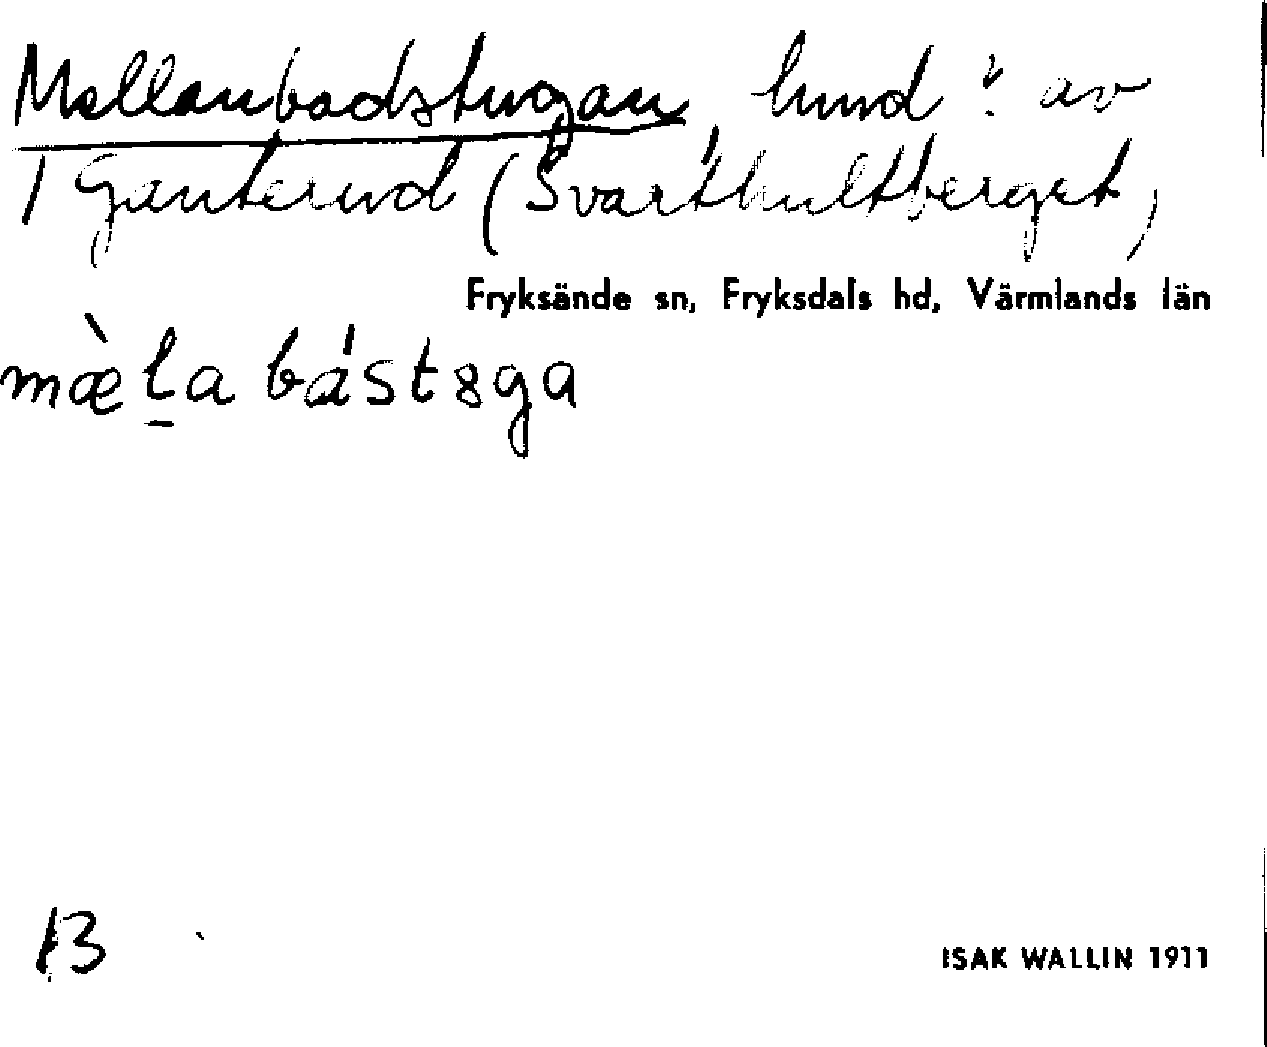 Mellanbadstugan, hmd : av
1 Ganterud (Svarthultberget)
Fryksände sn, Fryksdals hd, Värmlands län
mæ̀ḻa bástȣga
13
ISAK WALLIN 1911